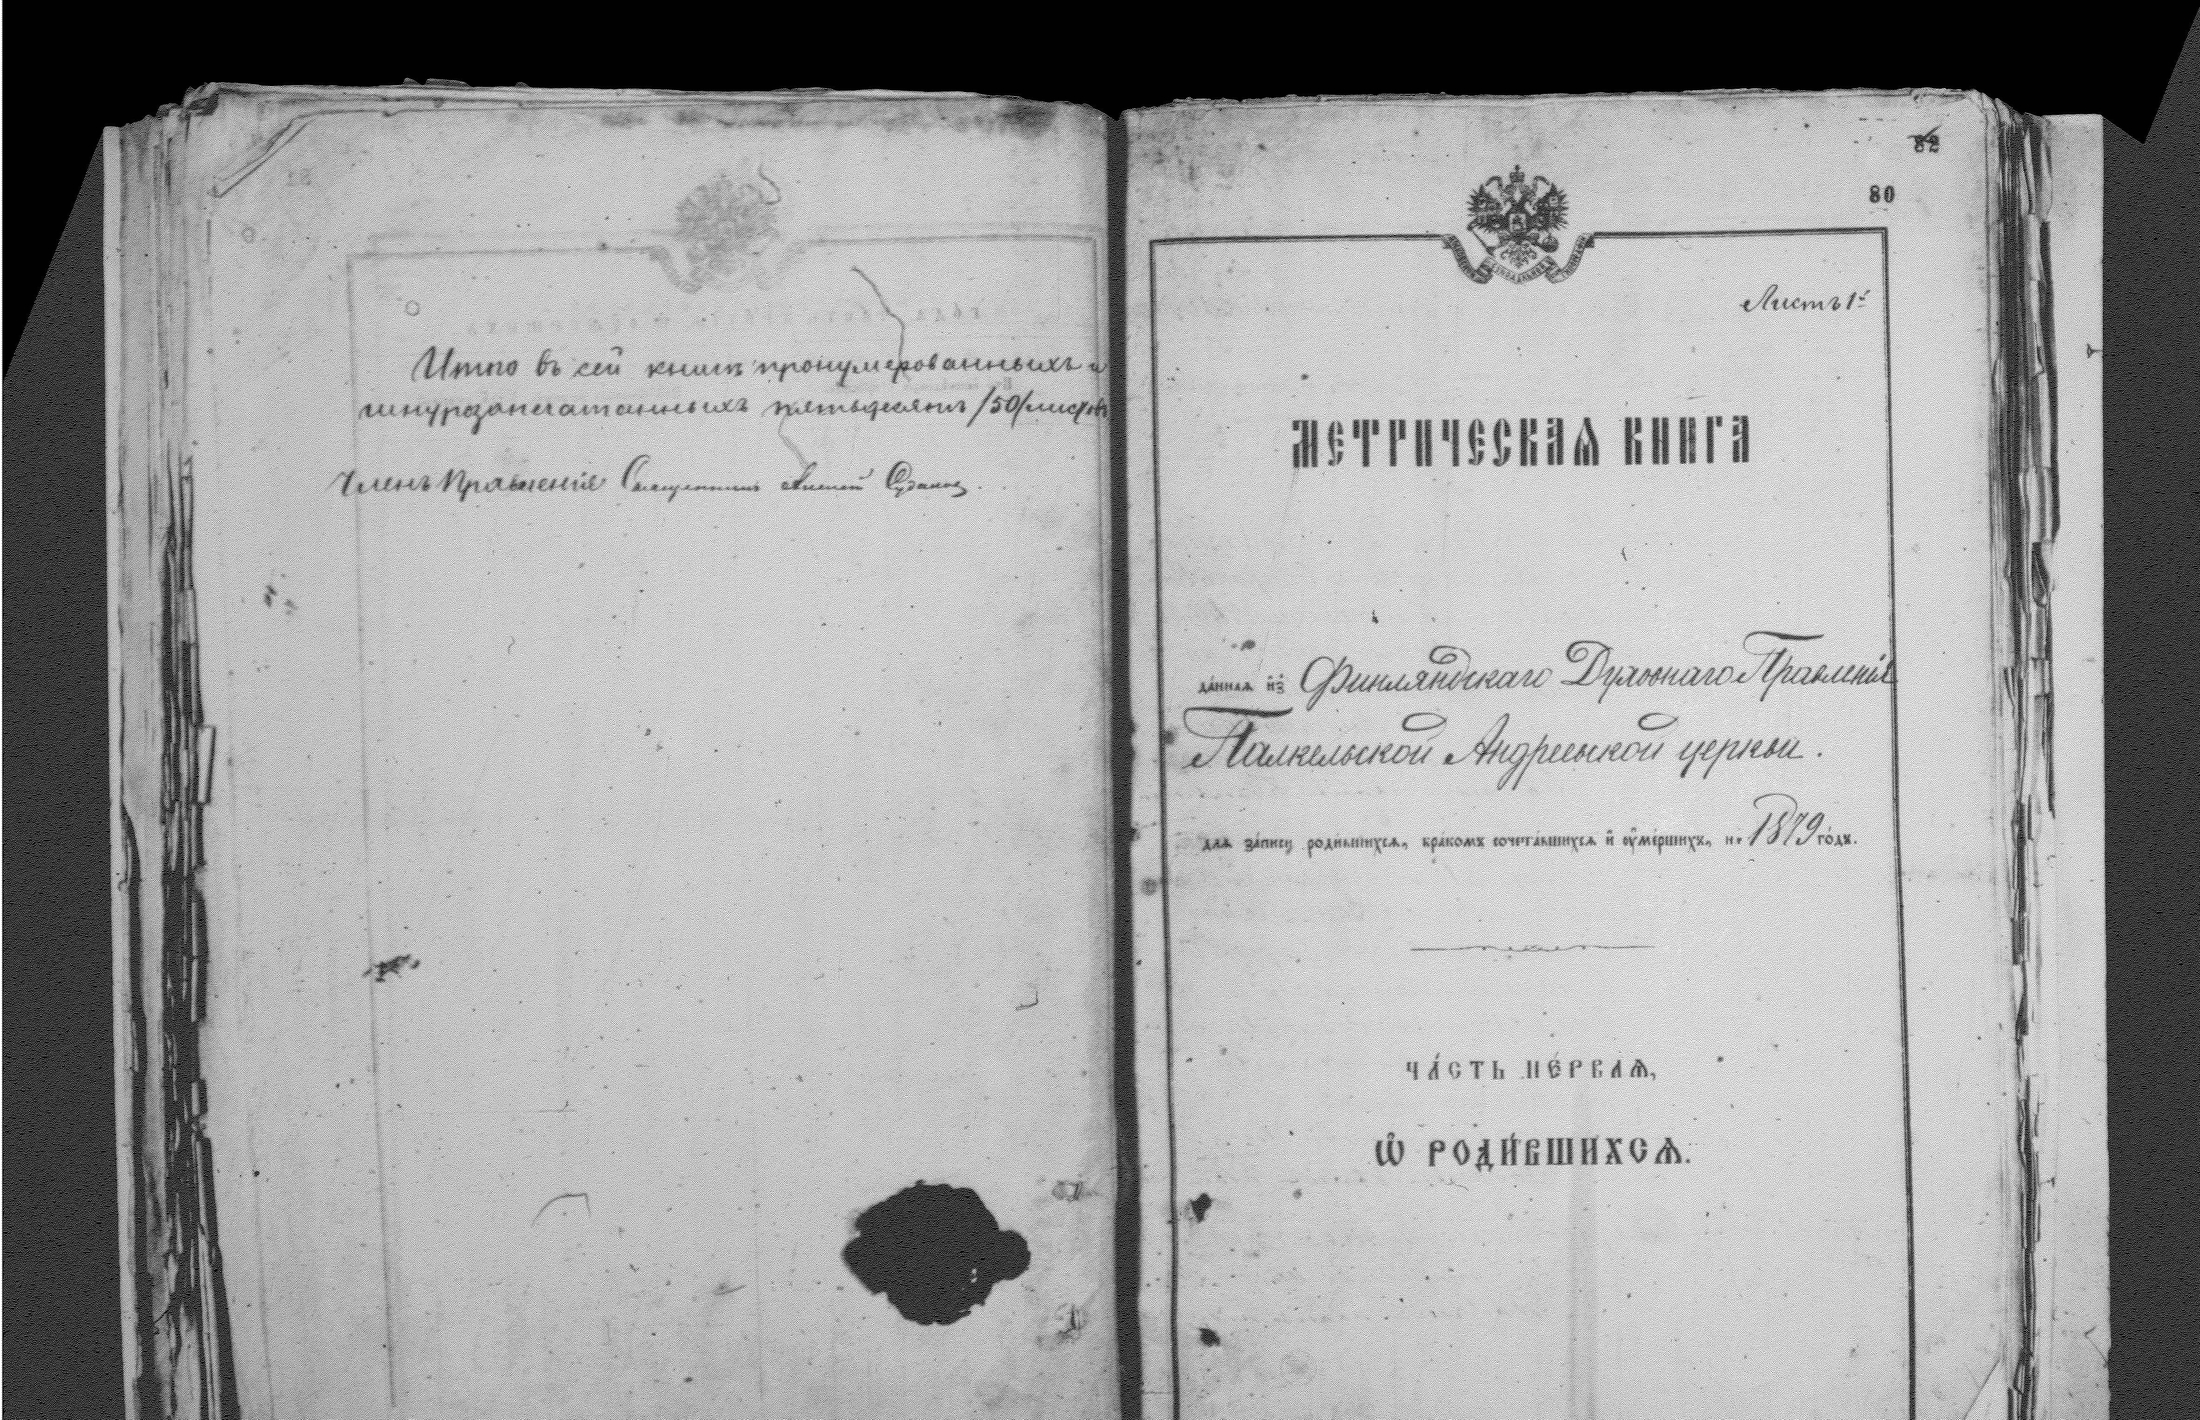 Итто въ сей книгѣ пронумерованныхъ и
шнурозапечатанныхъ пятьдесятъ /50/ листовъ
Членъ Правленія Священникъ
82
80
Листъ 1й
МЕТРИЧЕСКАѦ КНИГА
да́ннаѧ и҆з̾ Финляндскаго Духовнаго Правленія
Палкельской Андреевской церкви.
длѧ̀ за́писи роди́вшихсѧ, бра́комъ сочета́вшихсѧ и҆ ᲂу҆ме́ршихъ, на 1879 го́дъ.
ЧА́СТЬ ПЕ́РВАѦ,
Ѽ РОДИ́ВШИХСѦ.